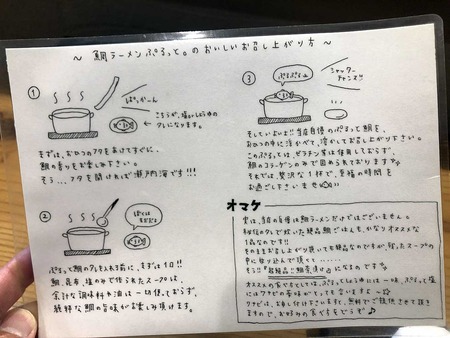 ～ 鯛ラーメンぷるっと。のおいしいお召し上がり方 ～
①
ぱっかーん
こちらが、塩としょうゆの
タレになります。
まずは、おひつのフタをあけてすぐに、
鯛の香りをお楽しみ下さい。
そう...フタを開ければ瀬戸内海です!!!
②
ぼくは
まだだよ
ぷるっと鯛のタレを入れる前に、まずは1口!!
鯛、昆布、塩のみで作られたスープは、
余計な調味料や油は一切使っておらず、
純粋な鯛の旨味がお楽しみ頂けます。
③
ぷるぷるっ
シャッター
チャンス!!
そしていよいよ!!当店自慢のぷるっと鯛を、
おひつの中に浮かべて、溶かしてお召し上がり下さい。
このぷるっとは、ゼラチン等は使用しておらず、
鯛のコラーゲンのみで固められております
それでは、贅沢な1杯で、至福の時間を
お過ごし下さいませ
オマケ
実は、当店の自慢は鯛ラーメンだけではございません。
秘伝のタレで炊いた絶品鯛ごはんも、かなりオススメな
1品なのです!!
そのままお召し上がり頂いても絶品なのですが、残ったスープの
中に放り込んで頂くと......
そう!!『超絶品!!鯛茶漬け』になるのです
オススメの食べ方としては、ぷるっとしょうゆには一味、ぷるっと塩
にはワサビの薬味がとっても合いますよ～
ワサビは、お申し付け下さいますと、無料でご提供させて頂き
ますので、お好みの食べ方をどうぞ♪